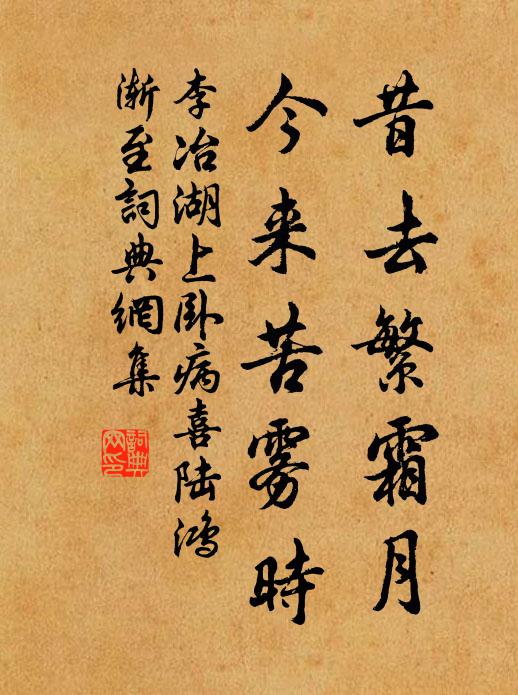 昔去繁霜月
今来苦雾時
李冶湖上卧病喜陆鸿
渐至詞典網集
詞典网印